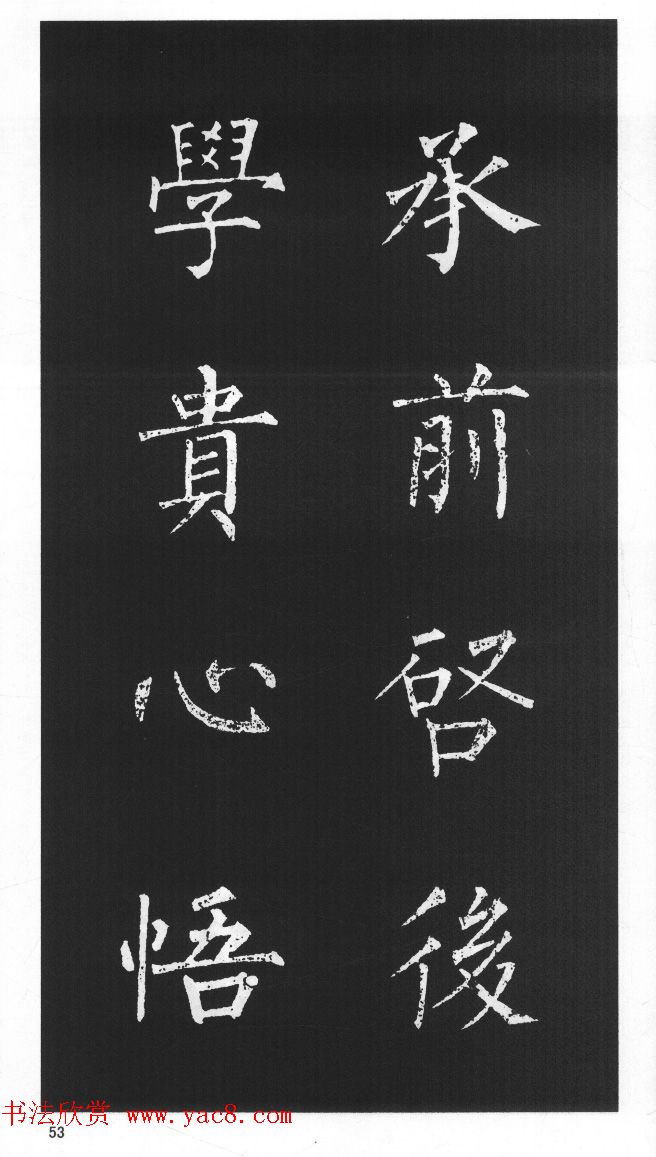 承前啓後
學貴心悟
书法欣赏 www.yac8.com
53